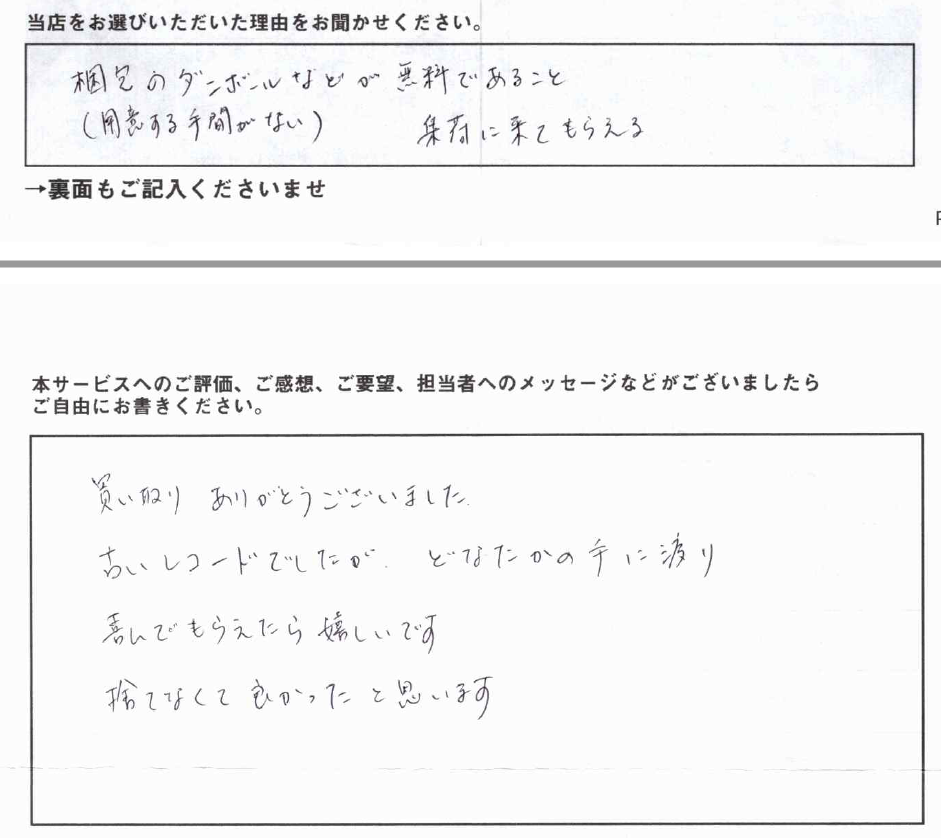 当店をお選びいただいた理由をお聞かせください。
梱包のダンボールなどが無料であること
(用意する手間がない) 集荷に来てもらえる
→裏面もご記入くださいませ
本サービスへのご評価、ご感想、ご要望、担当者へのメッセージなどがございましたら
ご自由にお書きください。
買い取り ありがとうございました.
古いレコードでしたが. どなたかの手に渡り
喜んでもらえたら嬉しいです
捨てなくて良かったと思います